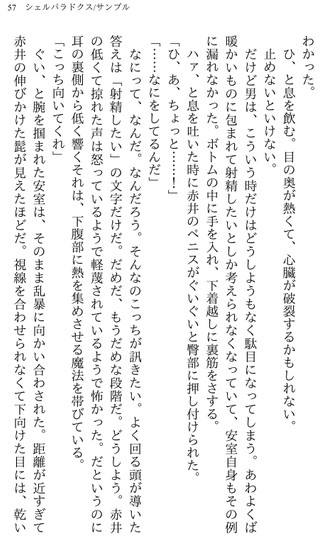 57　シェルパラドクス/サンプル
わかった。
　ひ、と息を飲む。目の奥が熱くて、心臓が破裂するかもしれない。
　止めないといけない。
　だけど男は、こういう時だけはどうしようもなく駄目になってしまう。あわよくば
暖かいものに包まれて射精したいとしか考えられなくなっていて、安室自身もその例
に漏れなかった。ボトムの中に手を入れ、下着越しに裏筋をさする。
　ハァ、と息を吐いた時に赤井のペニスがぐいぐいと臀部に押し付けられた。
「ひ、あ、ちょっと……！」
「……なにをしてるんだ」
　なにって、なんだ。なんだろう。そんなのこっちが訊きたい。よく回る頭が導いた
答えは「射精したい」の文字だけだ。だめだ、もうだめな段階だ。どうしよう。赤井
の低くて掠れた声は怒っているようで軽蔑されているようで怖かった。だというのに
耳の裏側から低く響くそれは、下腹部に熱を集めさせる魔法を帯びている。
「こっち向いてくれ」
　ぐい、と腕を掴まれた安室は、そのまま乱暴に向かい合わされた。距離が近すぎて
赤井の伸びかけた髭が見えたほどだ。視線を合わせられなくて下向けた目には、乾い